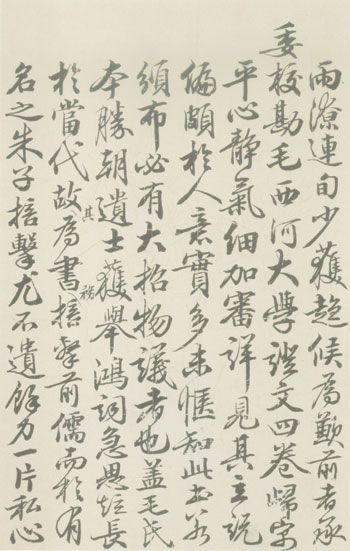 雨潦連旬少獲趨候為歉前者承
委校勘毛西河大學證文四卷歸
平心靜氣細加審詳見其立說
偏頗於人意實多未愜知此書若
頒布必有大招物議者也蓋毛氏
本勝朝遺士獲舉鴻詞急思長
於當代故其為書務掊擊前儒而於有
名之朱子掊擊尤不遺餘力一片私心